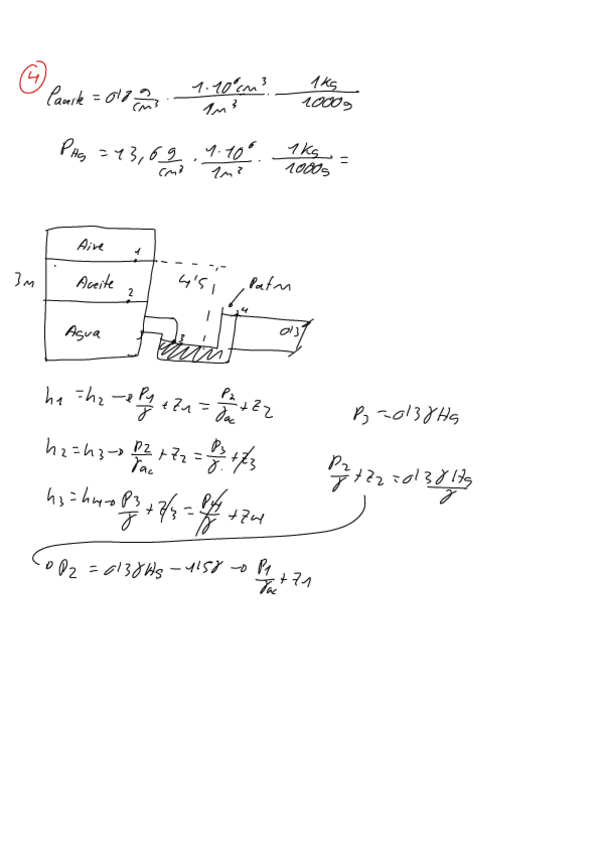 4
ρaceite = 0'8 g/cm³ · 1·10⁶cm³/1m³ · 1kg/1000g
ρHg = 13,6 g/cm³ · 1·10⁶/1m³ · 1kg/1000g =
Aire 1
3m Aceite 2 4'5 Patm
Agua 3 4 0'3
h1 = h2 → P1/γ + z1 = P2/γac + z2
P3 = 0'3γHg
h2 = h3 → P2/γac + z2 = P3/γ + z3
P2/γ + z2 = 0'3 γHg/γ
h3 = h4 → P3/γ + z3 = P4/γ + z4
P2 = 0'3γHg − 1'5γ → P1/γac + z1